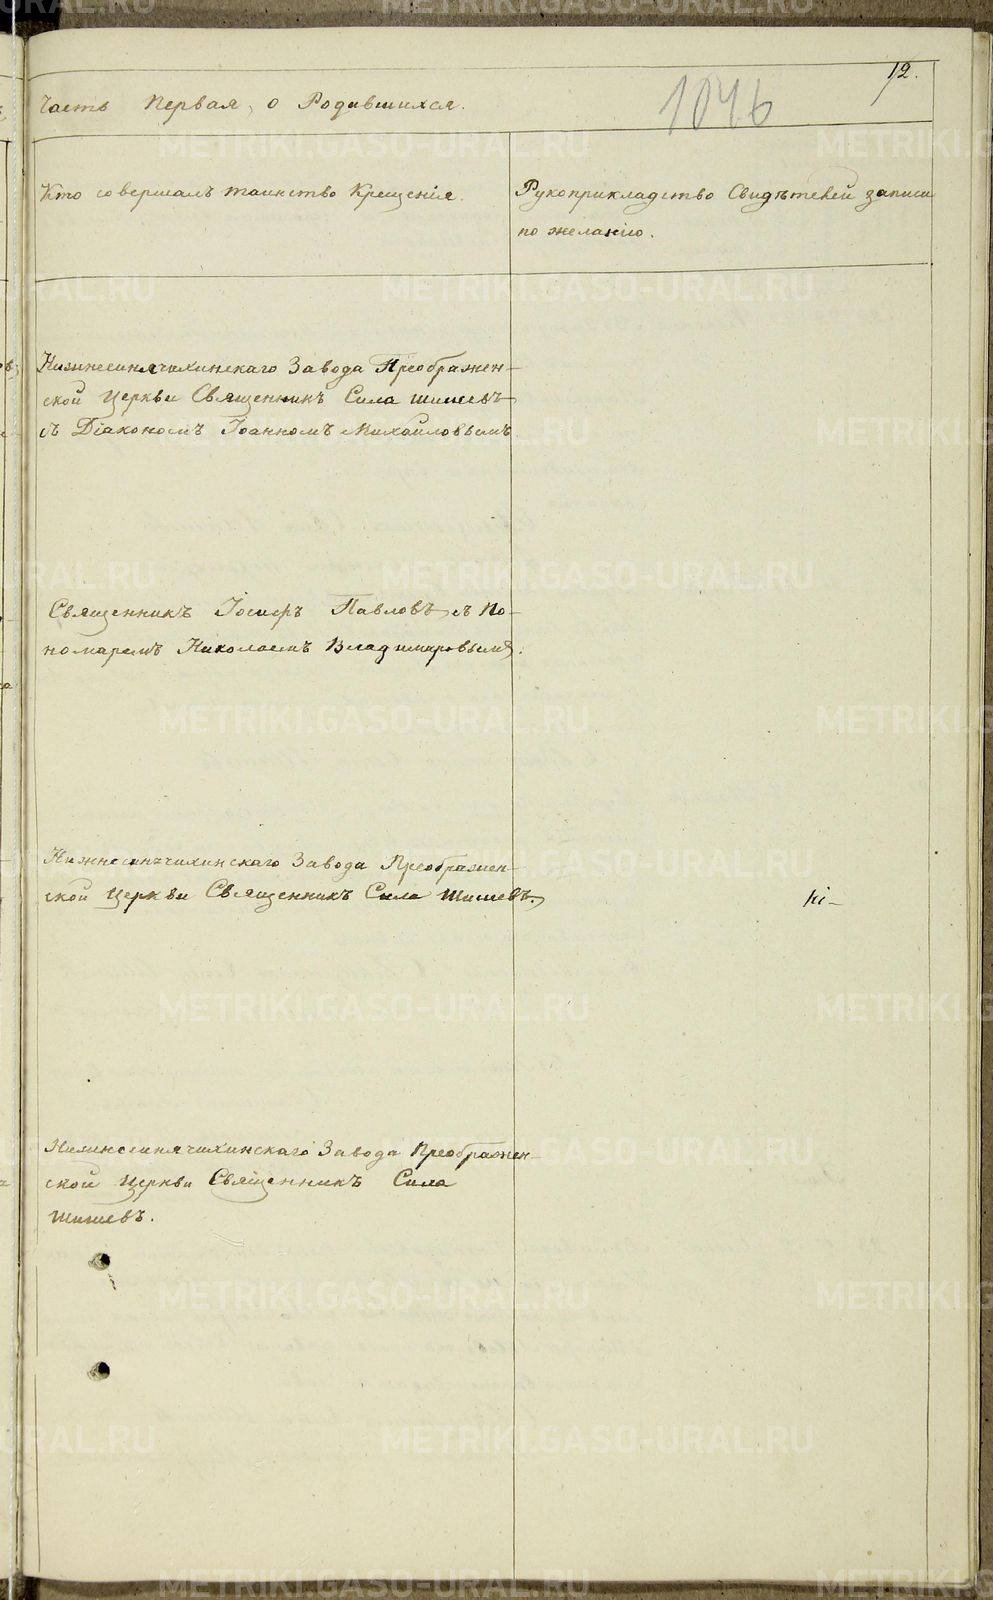 12.
Часть Первая, о Родившихся.
1046
Кто совершалъ таинство Крещенія.
Рукоприкладство Свидѣтелей записи
по желанію.
Нижнесинячихинскаго Завода Преображен-
ской Церкви Священникъ Сила Шишевъ
съ Діакономъ Іоанномъ Михайловымъ
Священникъ Іосифъ Павловъ съ По-
номаремъ Николаемъ Владимировымъ.
Нижнесинячихинскаго Завода Преображен-
ской Церкви Священникъ Сила Шишевъ.
Нижнесинячихинскаго Завода Преображен-
ской Церкви Священникъ Сила
Шишевъ.
METRIKI.GASO-URAL.RU